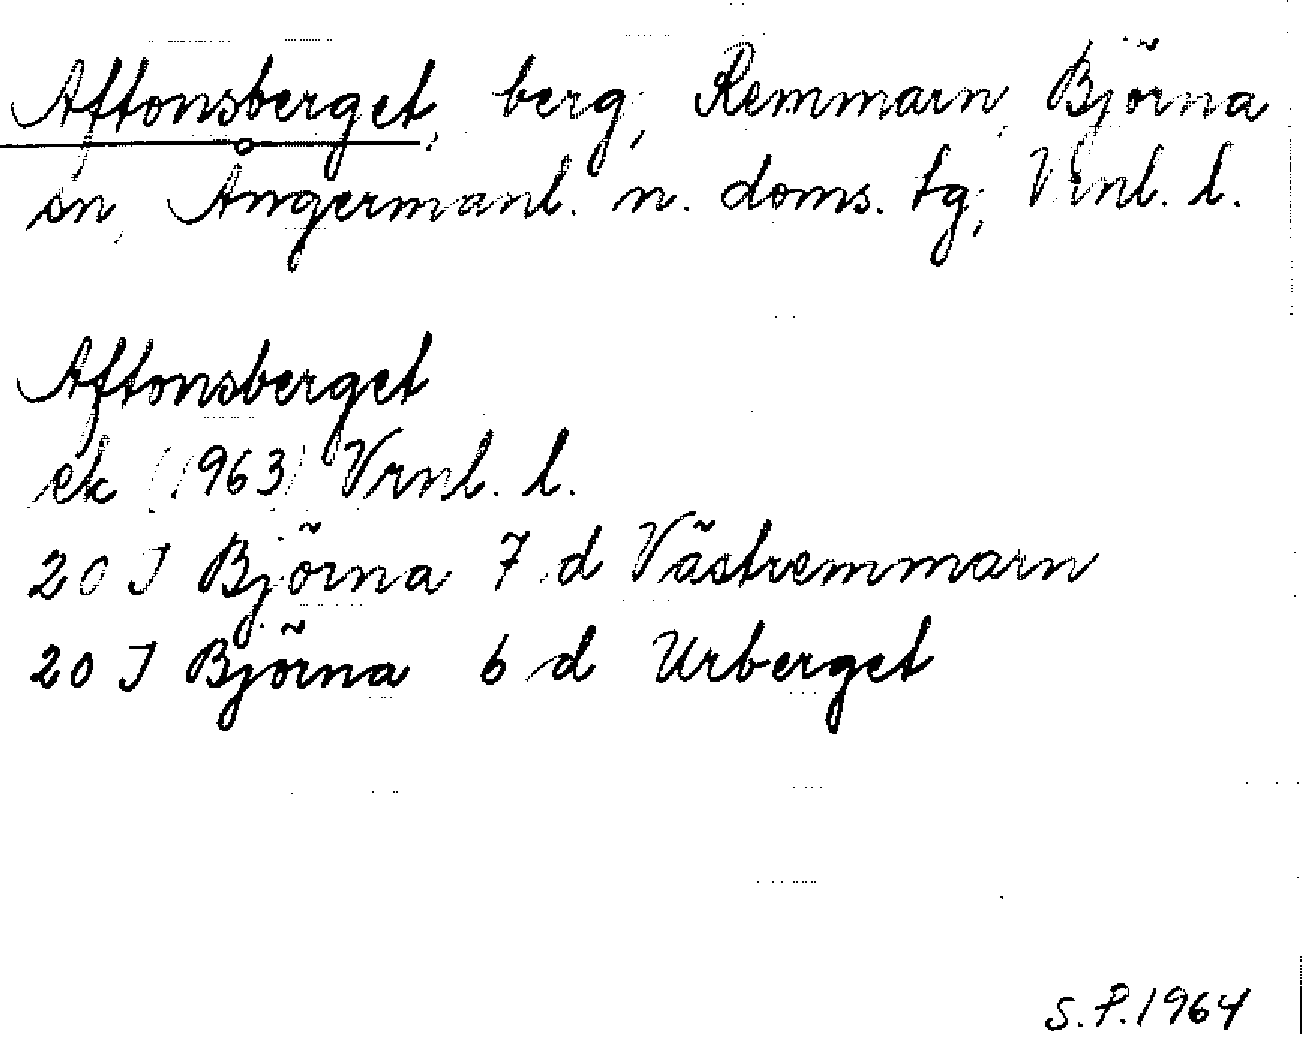 Aftonsberget, berg, Remmarn, Björna
sn, Ångermanl. n. doms. tg, Vrnl. l.
Aftonsberget
ek (1963) Vrnl. l.
20 J Björna 7 d Västremmarn
20 J Björna 6 d Urberget
S.P.1964